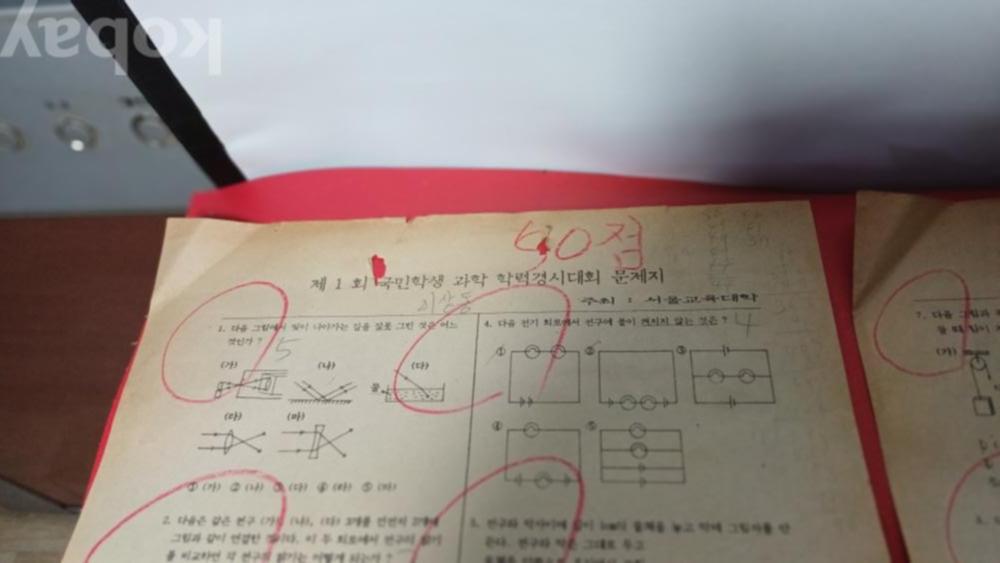 kobay
50점
제 1 회 국민학생 과학 학력경시대회 문제지
이상동
주최 : 서울교육대학
1. 다음 그림에서 빛이 나아가는 길을 잘못 그린 것은 어느
것인가? 5
(가) (나) (다)
물
(라) (마)
① (가) ② (나) ③ (다) ④ (라) ⑤ (마)
2. 다음은 같은 전구 (가), (나), (다) 3개를 건전지 2개에
그림과 같이 연결한 것이다. 이 두 회로에서 전구의 밝기
를 비교하면 각 전구의 밝기는 어떻게 되는가?
4. 다음 전기 회로에서 전구에 불이 켜지지 않는 것은? 4
① ② ③
④ ⑤
5. 전구와 막사이에 길이 1cm의 물체를 놓고 막에 그림자를 만
든다. 전구와 막은 그대로 두고
7. 다음 그림과
(가)